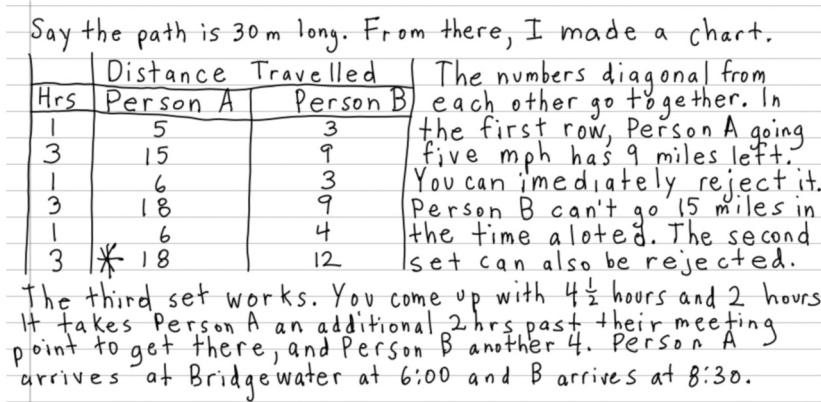 Say the path is 30 m long. From there, I made a chart.
Distance Travelled
Hrs Person A Person B
1 5 3
3 15 9
1 6 3
3 18 9
1 6 4
3 * 18 12
The numbers diagonal from
each other go together. In
the first row, Person A going
five mph has 9 miles left.
You can imediately reject it.
Person B can't go 15 miles in
the time aloted. The second
set can also be rejected.
The third set works. You come up with 4 1/2 hours and 2 hours
It takes Person A an additional 2 hrs past their meeting
point to get there, and Person B another 4. Person A
arrives at Bridgewater at 6:00 and B arrives at 8:30.